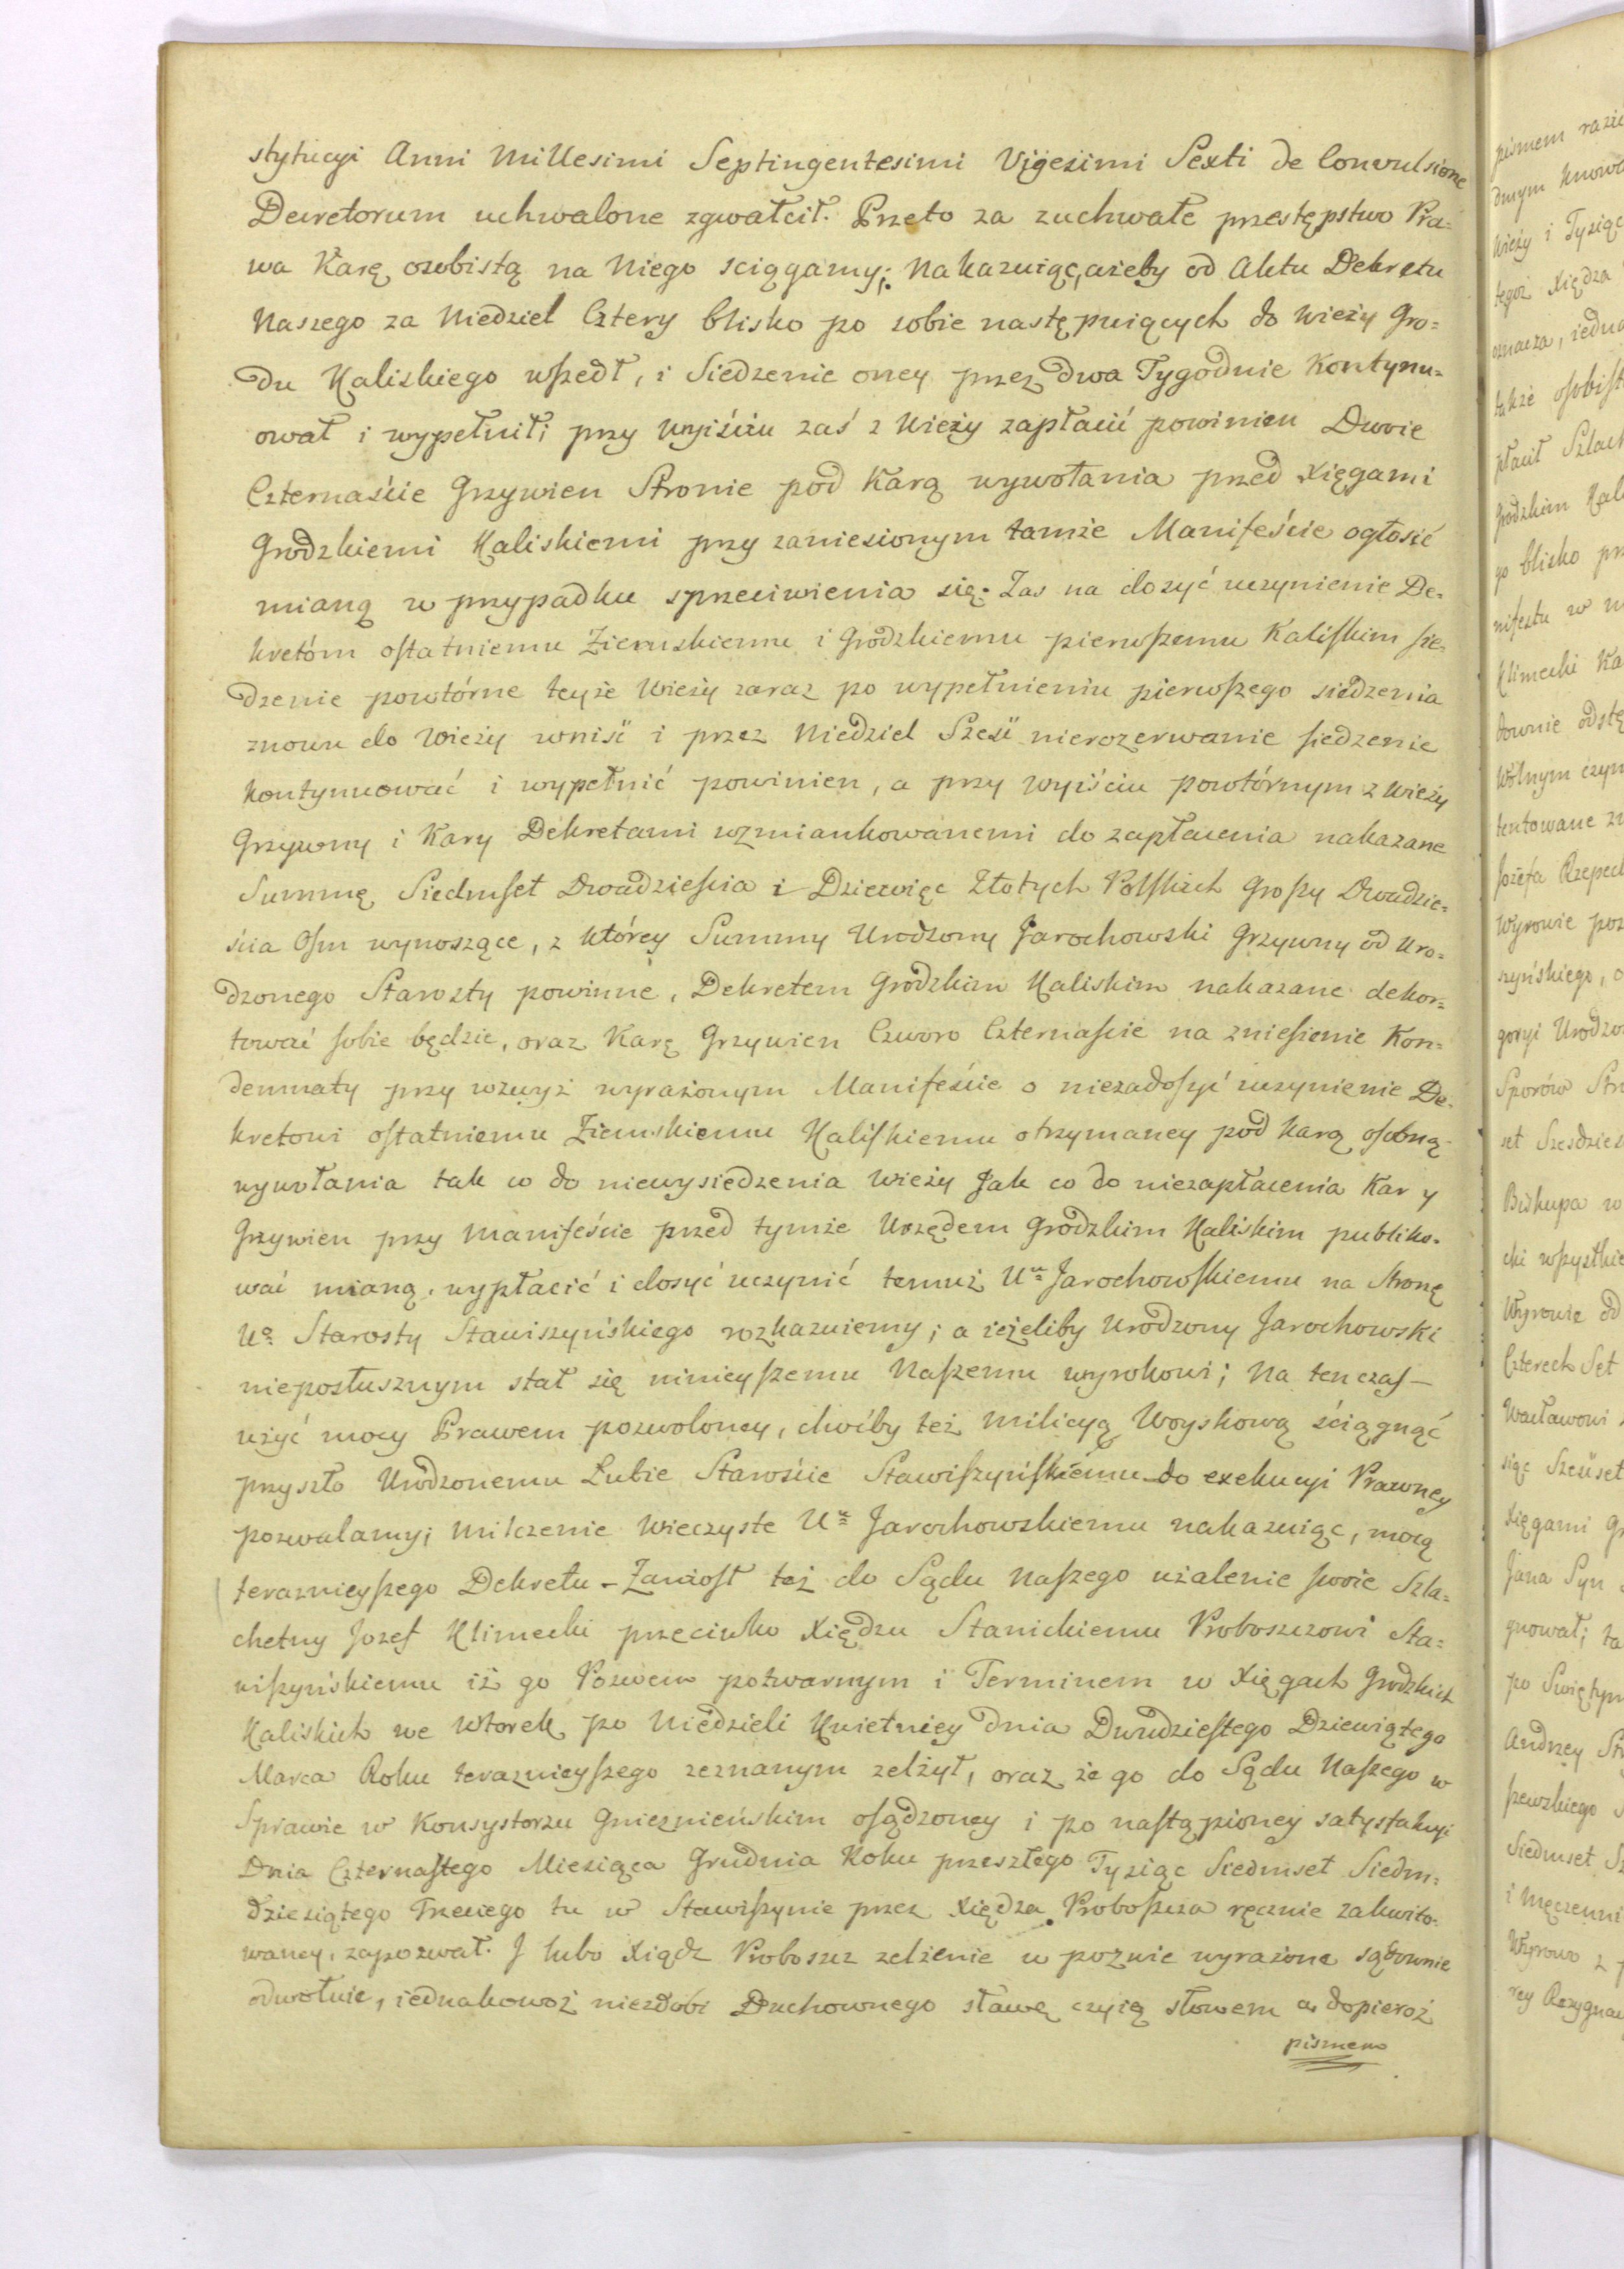 stytucyi Anni Millesimi Septingentesimi Vigesimi Sexti de Convulsione
Decretorum uchwalone zgwałcił. Przeto za zuchwałe przestępstwo Pra=
wa Karę osobistą na Niego sciągamy; Nakazuiąc, ażeby od Aktu Dekretu
Naszego za Niedziel Cztery blisko po sobie następuiących do Wieży Gro=
du Kaliskiego wszedł, i Siedzenie oney przez dwa Tygodnie Kontynu=
ował i wypełnił; przy wyiściu zaś z Wieży zapłacić powinien Dwoie
Czternaście Grzywien Stronie pod Karą wywołania przed Xięgami
Grodzkiemi Kaliskiemi przy zaniesionym tamże Manifeście ogłosić
mianą w przypadku sprzeciwienia się. Zas na dosyć uczynienie De=
kretóm ostatniemu Ziemskiemu i Grodzkiemu pierwszemu Kaliskim sie=
dzenie powtórne teyże Wieży zaraz po wypełnieniu pierwszego siedzenia
znowu do Wieży wniść i przez Niedziel Sześć nierozerwanie siedzenie
kontynuować i wypełnić powinien, a przy wyiściu powtórnym z Wieży
Grzywny i Kary Dekretami wzmiankowanemi do zapłacenia nakazane
Summę Siedmset Dwadzieścia i Dziewięc Złotych Polskich Groszy Dwadzie=
ścia Osm wynoszące, z którey Summy Urodzony Jarochowski Grzywny od Uro=
dzonego Starosty powinne, Dekretem Grodzkim Kaliskim nakazane dekor=
tować sobie będzie, oraz Karę Grzywien Czworo Czternaście na zniesienie Kon=
demnaty przy wzwyż wyrażonym Manifeście o niezadosyć uczynienie De=
kretowi ostatniemu Ziemskiemu Kaliskiemu otrzymaney pod Karą osobną
wywołania tak co do niewysiedzenia Wieży Jak co do niezapłacenia Kar y
Grzywien przy Manifeście przed tymże Urzędem Grodzkim Kaliskim publiko=
wać mianą, wypłacić i dosyć uczynić temuż U<sup>u</sup> Jarochowskiemu na Stronę
U<sup>o</sup> Starosty Stawiszyńskiego rozkazuiemy; a ieżeliby Urodzony Jarochowski
nieposłusznym stał się ninieyszemu Naszemu wyrokowi; Na tenczas—
użyć mocy Prawem pozwoloney, choćby też Milicyą Woyskową ściągnąć
przyszło Urodzonemu Lubie Staroście Stawiszyńskiemu do exekucyi Prawney
pozwalamy; Milczenie Wieczyste U<sup>u</sup> Jarochowskiemu nakazuiąc, mocą
teraznieyszego Dekretu – Zaniosł też do Sądu Naszego użalenie swoie Szla=
chetny Jozef Klimecki przeciwko Xiędzu Stanickiemu Proboszczowi Sta=
wiszyńskiemu iż go Pozwem potwarnym i Terminem w Xięgach Grodzkich
Kaliskich we Wtorek po Niedzieli Kwietniey dnia Dwudziestego Dziewiątego
Marca Roku teraznieyszego zeznanym zelżył, oraz że go do Sądu Naszego w
Sprawie w Konsystorzu Gnieznieńskim osądzoney i po nastąpioney satysfakcyi
Dnia Czternastego Miesiąca Grudnia Roku przeszłego Tysiąc Siedmset Siedm=
dziesiątego Trzeciego tu w Stawiszynie przez Xiędza Proboszcza ręcznie zakwito=
waney, zapozwał. I lubo Xiądz Proboszcz zelżenie w pozwie wyrażone sądownie
odwołuie, iednakowoż niezdobi Duchownego sławę czyią słowem a dopieroż
pismem